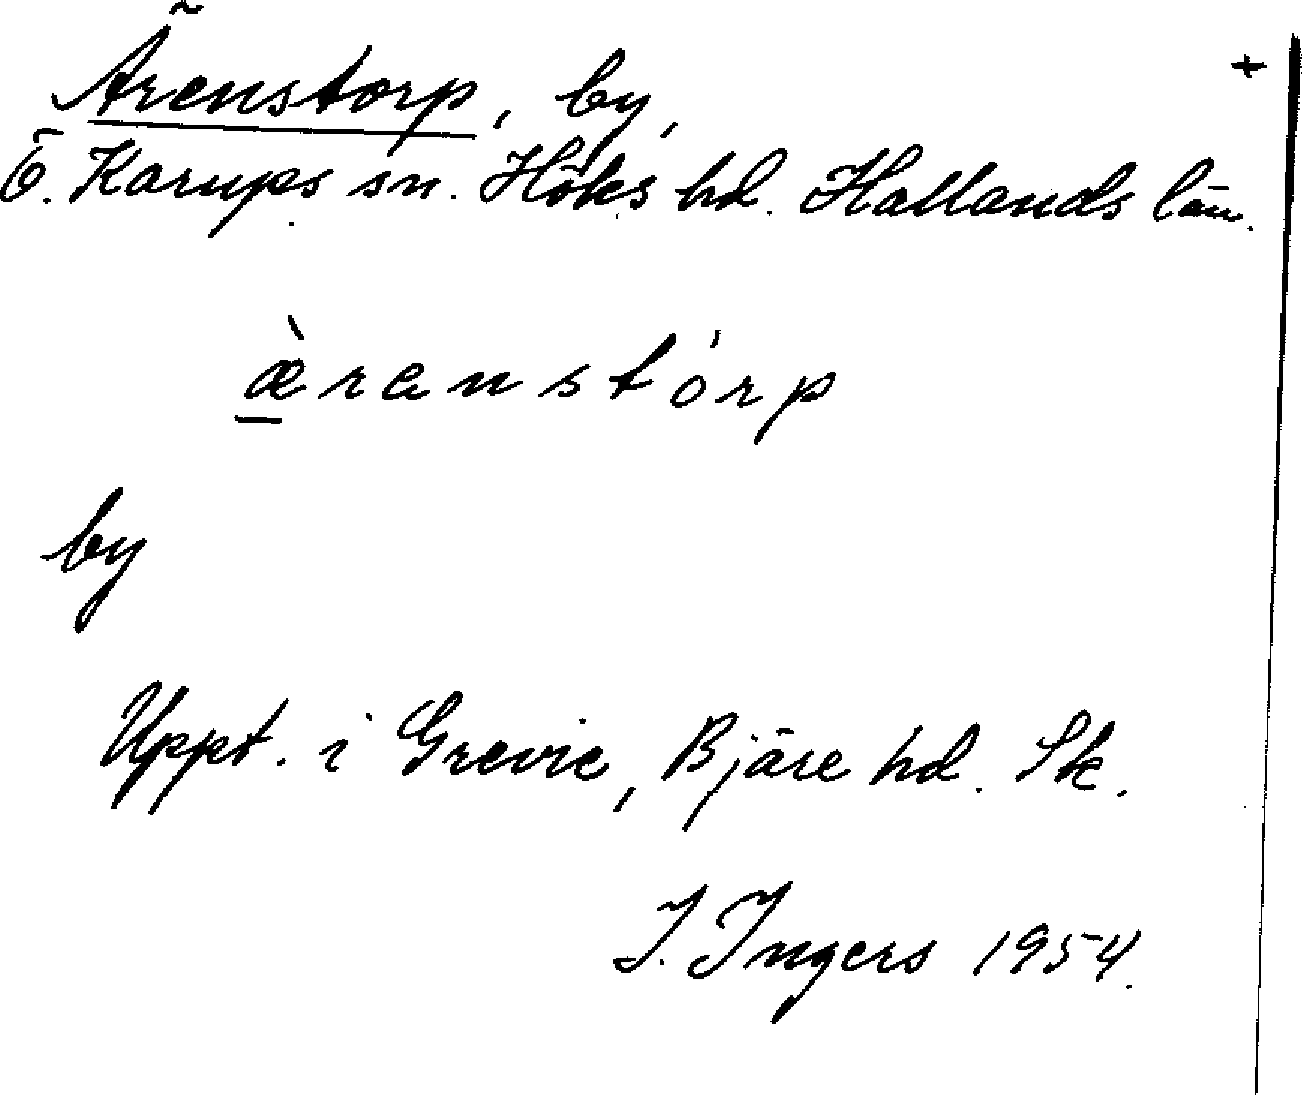 Ärenstorp, by, +
Ö. Karups sn. Höks hd. Hallands län.
æ̀renstórp
by
Uppt. i Grevie, Bjäre hd. Sk.
I. Ingers 1954.